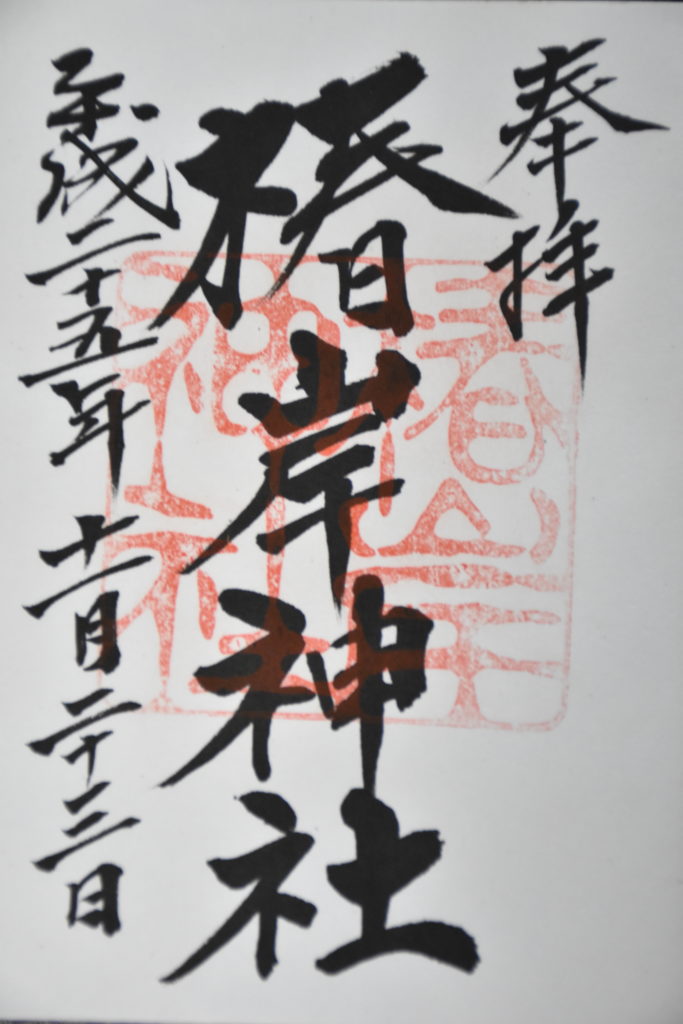 奉拝
椿岸神社
平成二十五年 十一月二十三日
椿岸神社